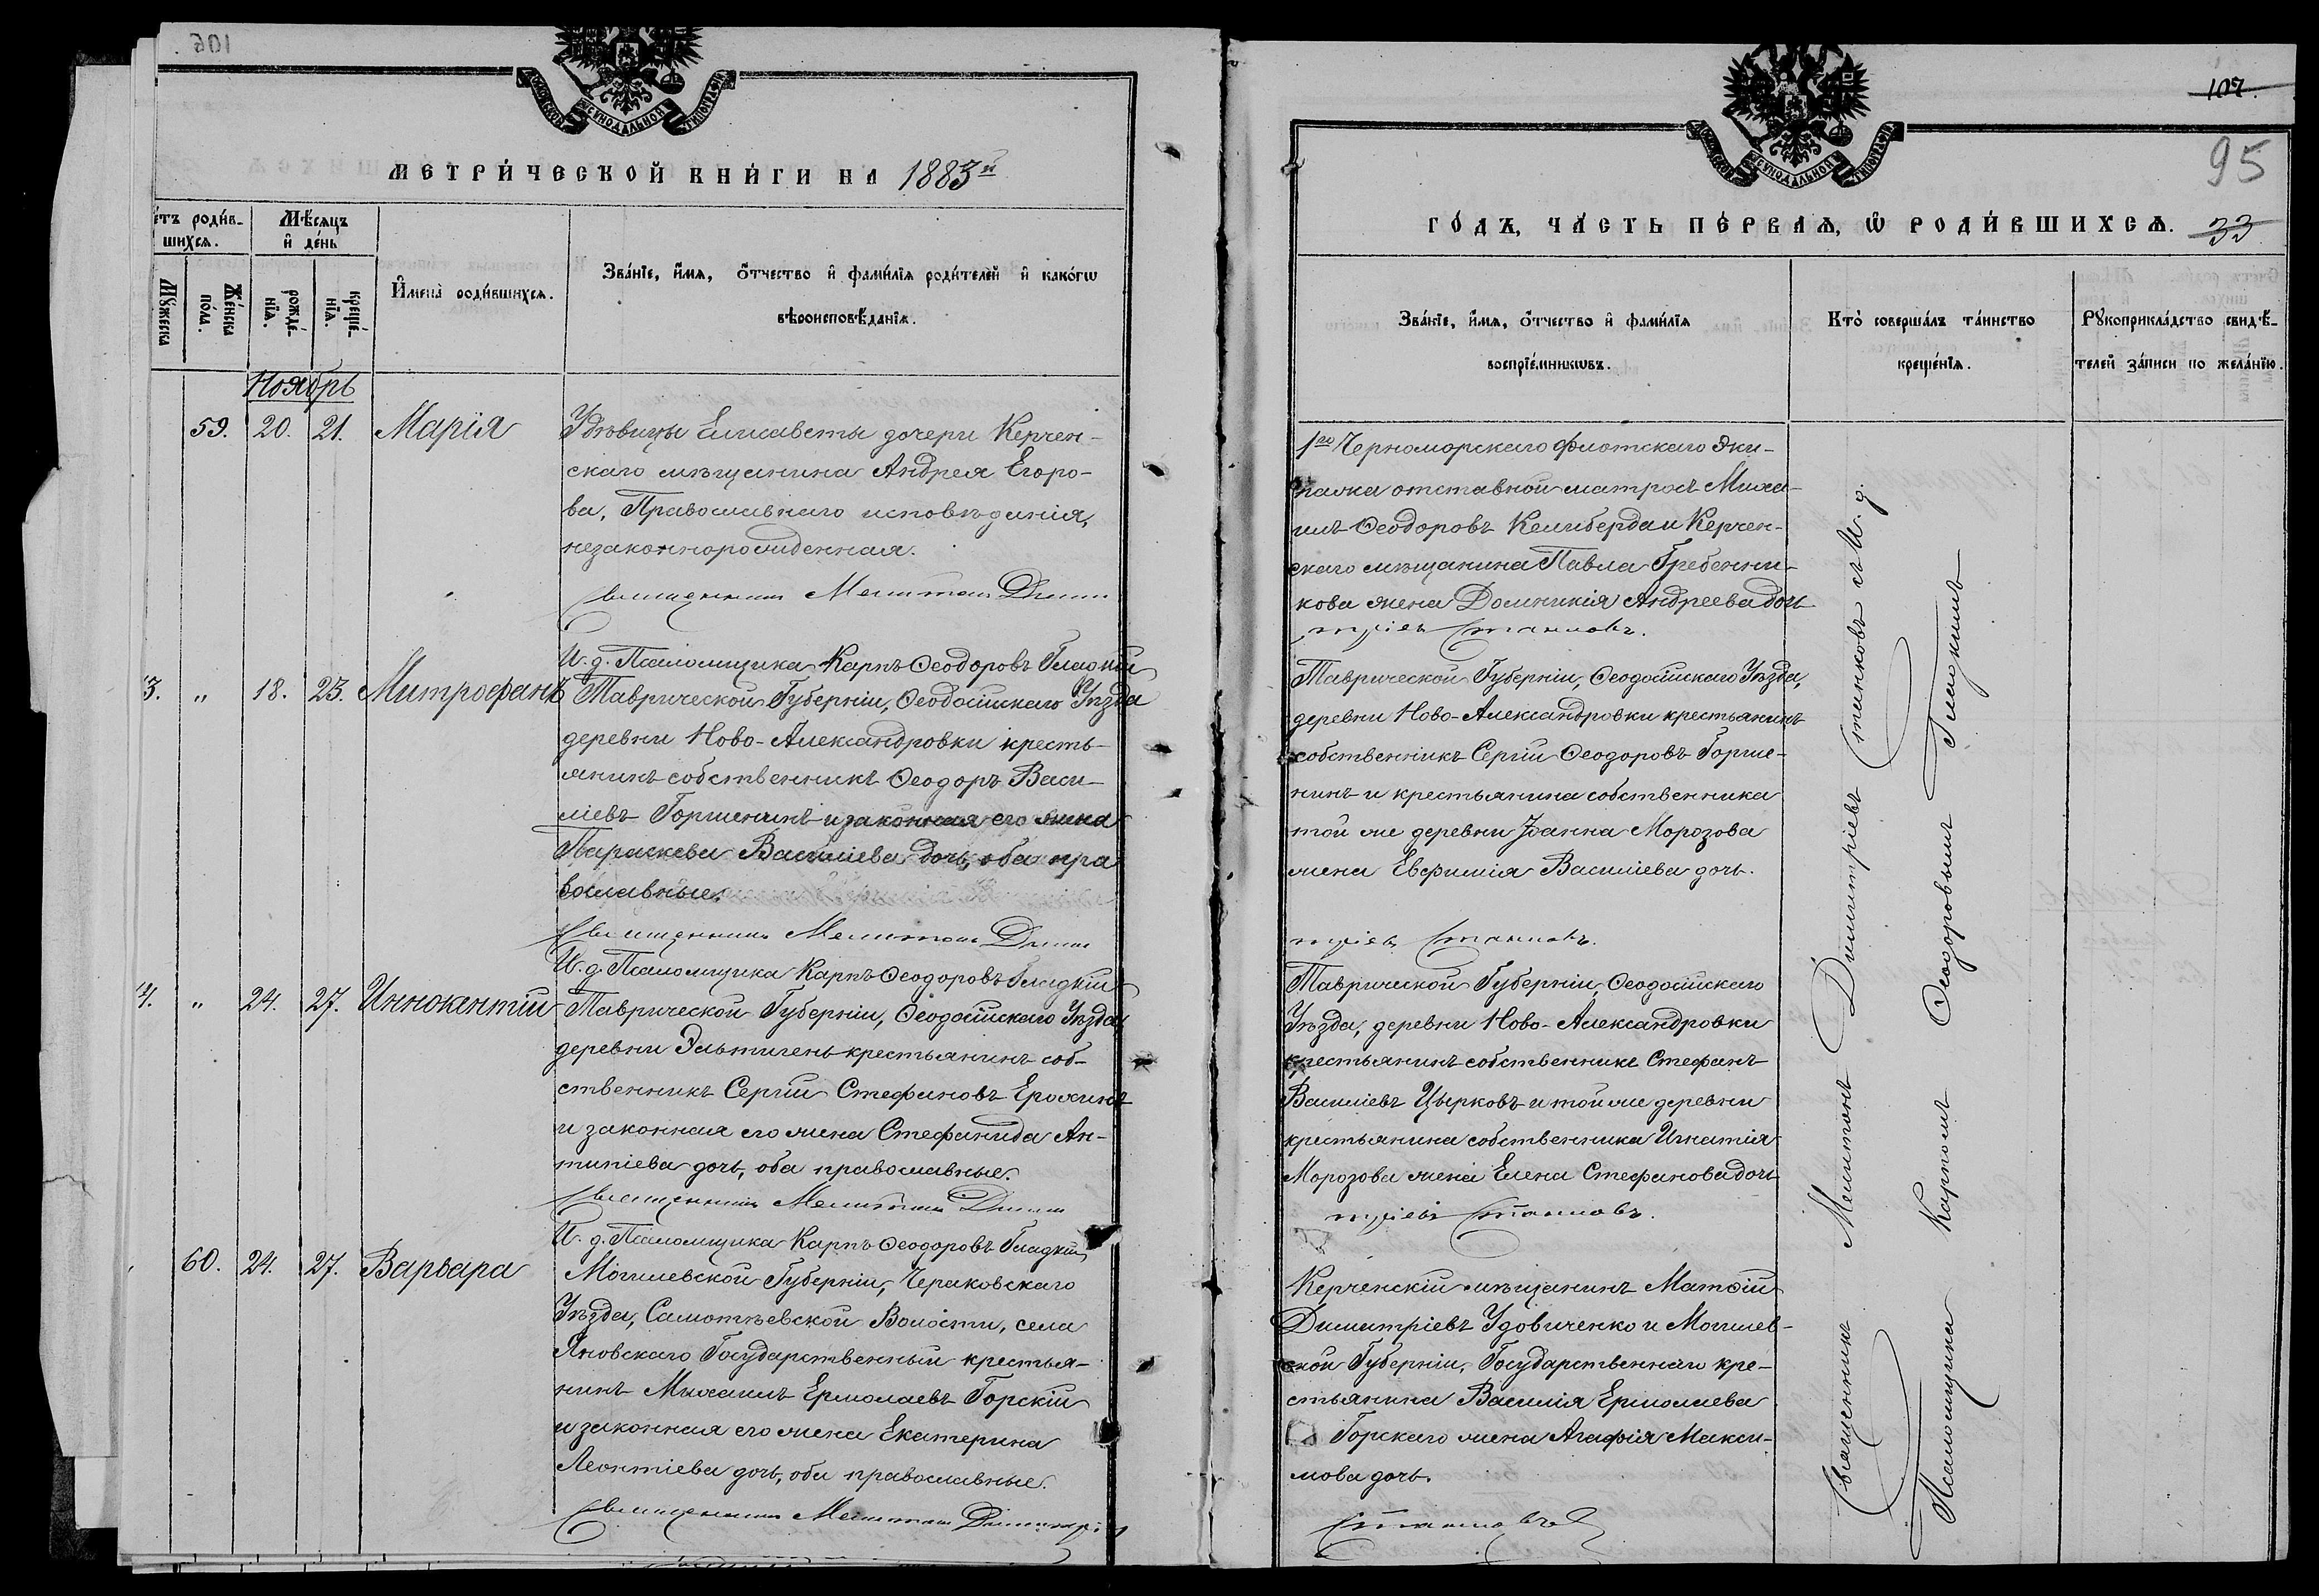 106
МЕТРИ́ЧЕСКОЙ КНИ́ГИ НА 1883й
е́тъ роди́в-
шихся.
Мѣ́сяцъ
и҆ де́нь
Мꙋ́жеска
Же́нска
по́ла.
рожде́-
нїя.
креще́-
нїя.
И҆мена̀ роди́вшихся.
Зва́нїе, и҆́мя, ѻ҆́тчество и҆ фами́лїя роди́телей и҆ како́гѡ
вѣроисповѣ́данїя.
Ноябрь
59. 20. 21. Марія
Дѣвицы Елисаветы дочери Керчен-
скаго мѣщанина Андрея Егоро-
ва, Православнаго исповѣданія,
незаконнорожденная.
Священникъ Мелитонъ Дими
И. д. Псаломщика Карпъ Ѳеодоровъ Гладкій
3. " 18. 23. Митрофанъ
Таврической Губерніи, Ѳеодосійскаго Уѣзда
деревни Ново-Александровки кресть-
янинъ собственникъ Ѳеодоръ Васи-
ліевъ Горшенинъ и законная его жена
Параскева Василіева дочь, оба пра
вославные.
Священникъ Мелитонъ Дими
И. д. Псаломщика Карпъ Ѳеодоровъ Гладкій
4. " 24. 27. Иннокентій
Таврической Губерніи, Ѳеодосійскаго Уѣзда
деревни Эльтигень крестьянинъ соб-
ственникъ Сергій Стефановъ Ерохинъ
и законная его жена Стефанида Ан-
типіева дочь, оба православные.
Священникъ Мелитонъ Дими
И. д. Псаломщика Карпъ Ѳеодоровъ Гладкій
60. 24. 27. Варвара
Могилевской Губерніи, Чериковскаго
Уѣзда, Самотѣевской Волости, села
Яновскаго Государственный крестья-
нинъ Михаилъ Ермолаевъ Горскій
и законная его жена Екатерина
Леонтіева дочь, оба православные.
Священникъ Мелитонъ Димитрі
107.
95
ГО́ДЪ, ЧА́СТЬ ПЕ́РВАЯ, Ѡ҆ РОДИ́ВШИХСЯ. 33
Зва́нїе, и҆́мя, ѻ҆́тчество и҆ фами́лїя
воспрїе́мникѡвъ.
Кто̀ соверша́лъ та́инство
креще́нїя.
Рꙋкоприкла́дство свидѣ́-
телей за́писи по жела́нїю.
1го Черноморскаго Флотскаго Эки-
пажа отставной матросъ Миха-
илъ Ѳеодоровъ Келиберда и Керчен-
скаго мѣщанина Павла Гребенни-
кова жена Домникія Андреева дочь
тріевъ Станковъ.
Таврической Губерніи, Ѳеодосійскаго Уѣзда,
деревни Ново-Александровки крестьянинъ
собственникъ Сергій Ѳеодоровъ Горше-
нинъ и крестьянина собственника
той же деревни Іоанна Морозова
жена Евфимія Василіева дочь.
тріевъ Станковъ.
Таврической Губерніи, Ѳеодосійскаго
Уѣзда, деревни Ново-Александровки
крестьянинъ собственникъ Стефанъ
Василіевъ Цырковъ и той же деревни
крестьянина собственника Игнатія
Морозова жена Елена Стефанова дочь
тріевъ Станковъ.
Керченскій мѣщанинъ Матѳій
Димитріевъ Удовиченко и Могилев-
ской Губерніи, Государственнаго кре-
стьянина Василія Ермолаева
Горскаго жена Агафія Макси-
мова дочь.
Станковъ
Священникъ Мелитонъ Димитріевъ Станковъ съ И. д.
Псаломщика Карпомъ Ѳеодоровымъ Гладкимъ